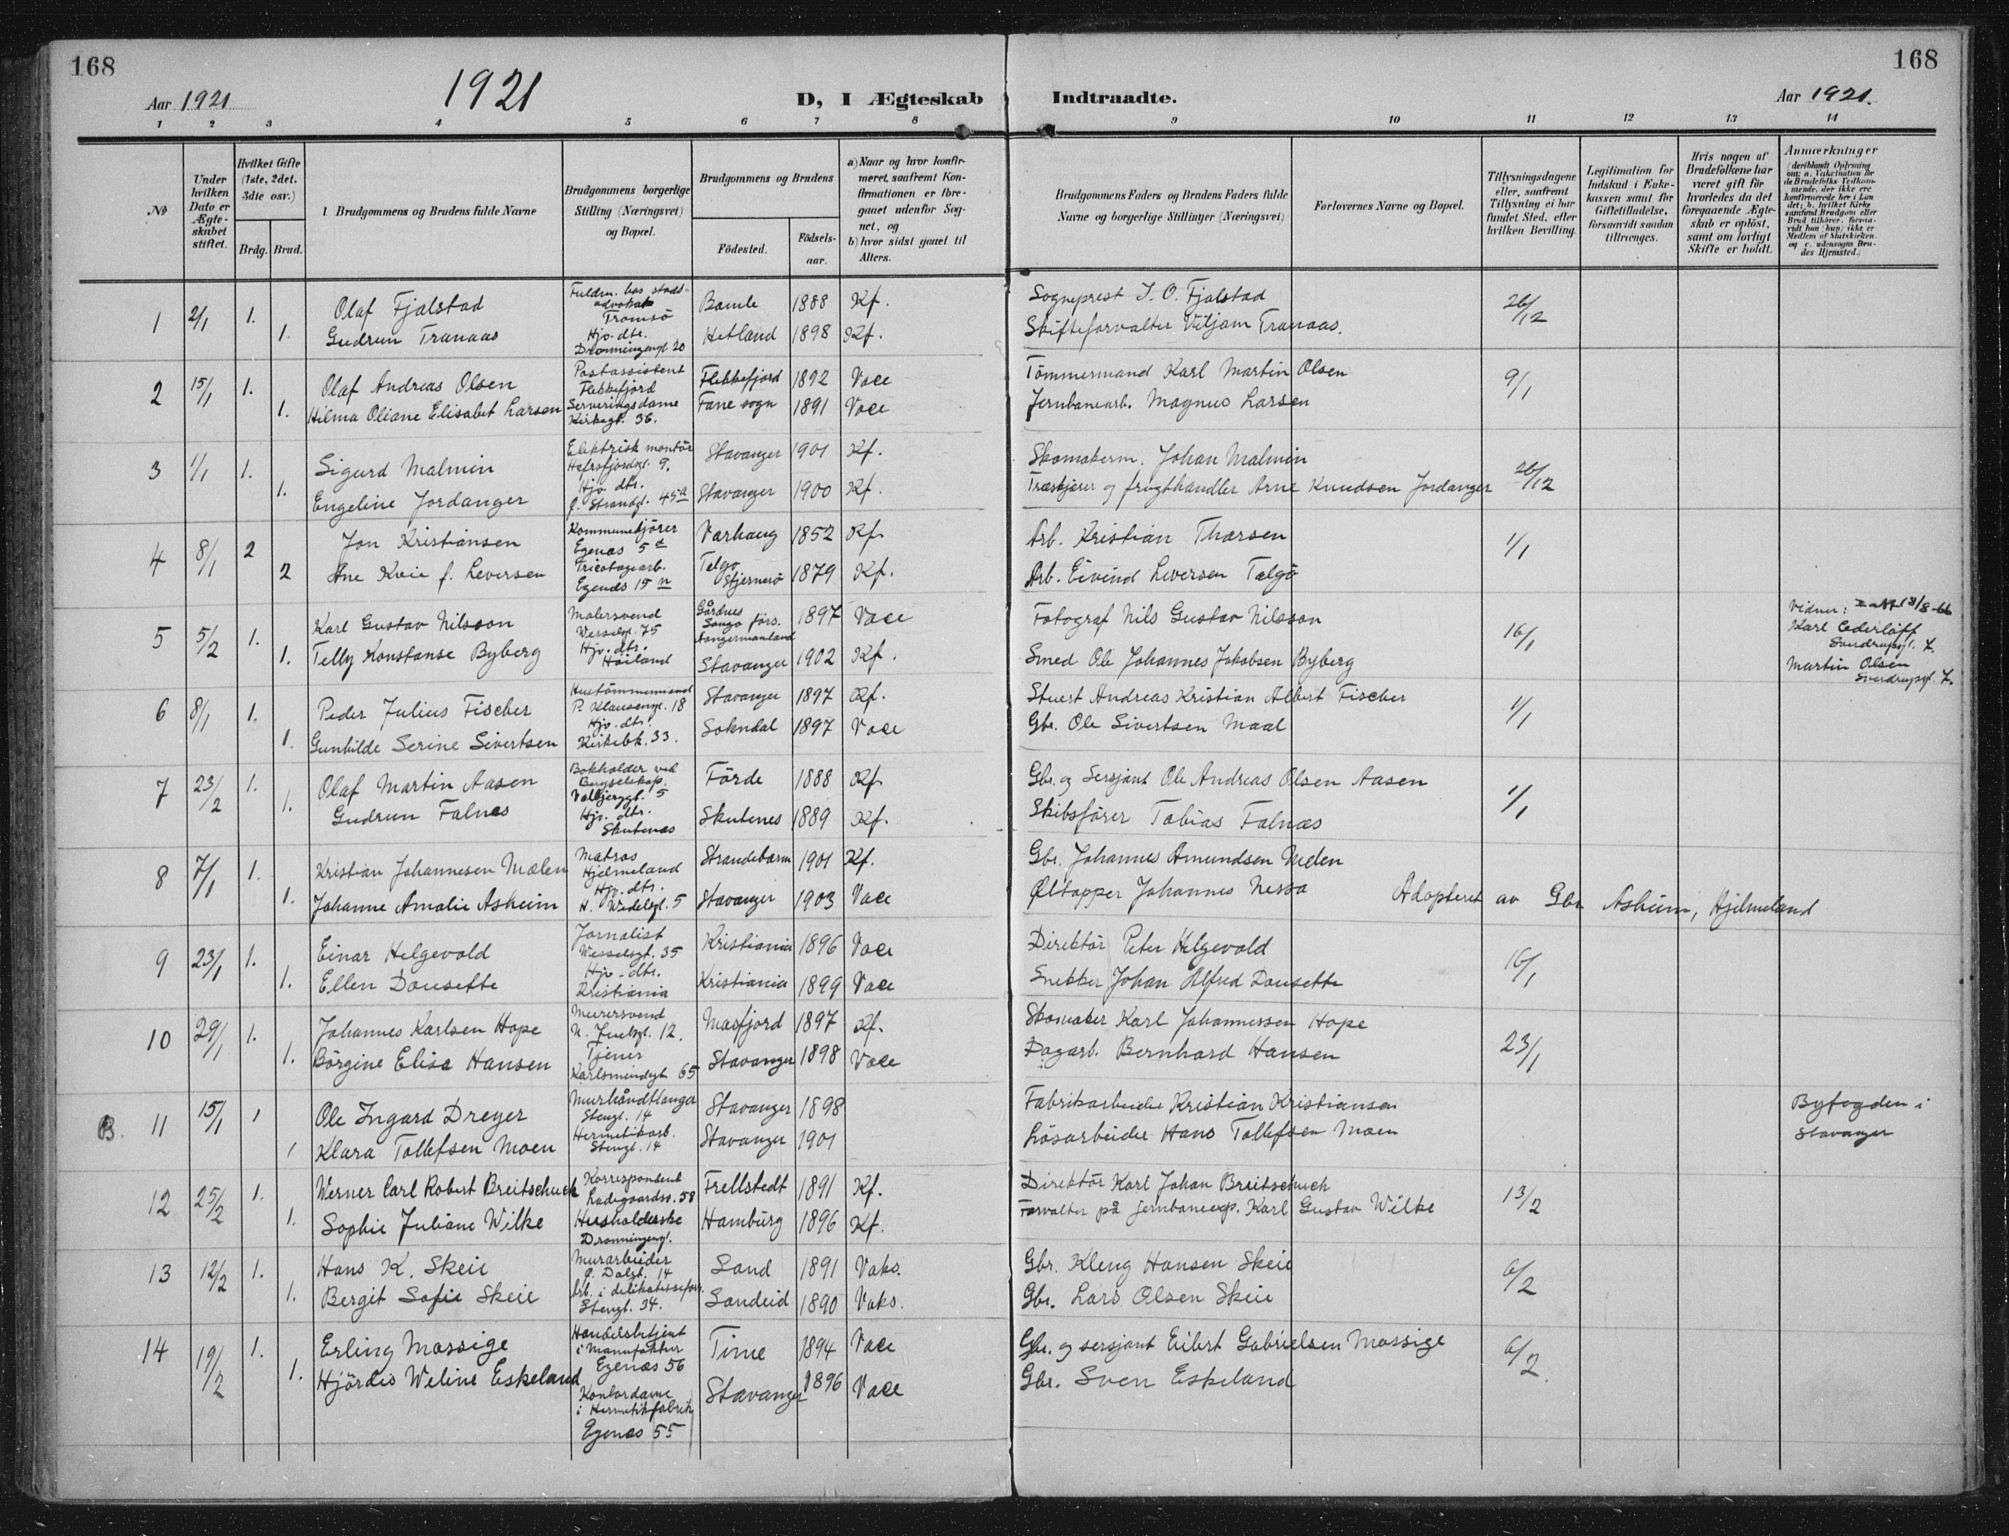 168
168
Aar 1921
1921
D, I Ægteskab Indtraadte.
Aar 1921.
1 2 3 4 5 6 7 8 9 10 11 12 13 14
No
Under hvilken Dato er Ægteskabet stiftet.
Hvilket Gifte (1ste, 2det, 3die osv.)
Brdg. Brud.
Brudgommens og Brudens fulde Navne
Brudgommens borgerlige Stilling (Næringsvei) og Bopæl.
Brudgommens og Brudens
Fødested.
Fødselsaar.
a) Naar og hvor konfirmeret, saafremt Konfirmationen er foregaaet udenfor Sognet, og
b) hvor sidst gaaet til Alters.
Brudgommens Faders og Brudens Faders fulde Navne og borgerlige Stillinger (Næringsvei)
Forlovernes Navne og Bopæl.
Tillysningsdagene eller, saafremt Tillysning ei har fundet Sted, efter hvilken Bevilling.
Legitimation for Indskud i Enkekassen samt for Giftetilladelse, forsaavidt saadan tiltrænges.
Hvis nogen af Brudefolkene har været gift før hvorledes da det foregaaende Ægteskab er opløst, samt om lovligt Skifte er holdt.
Anmærkninger
1 2/1 1. Olaf Fjalstad Fuldm. hos stadsadvokat Tromsö Bamle 1888 Kf. Sogneprest J. O. Fjalstad 26/12
1. Gudrun Tranaas Hjv. dtr. Dronningengt 20 Hetland 1898 Kf. Skifteforvalter Viljam Tranaas.
2 15/1 1. Olaf Andreas Olsen Postassistent Flekkefjord Flekkefjord 1892 Vace Tömmermand Karl Martin Olsen 9/1
1. Hilma Oliane Elisabet Larsen Serveringsdame Kirkegt. 36. Fane sogn 1891 Vace Jernbanearb. Magnus Larsen
3 1/1 1. Sigurd Malmin Elektrisk montör Hafrsfjordgt. 9. Stavanger 1901 Kf. Skomakerm. Johan Malmin 26/12
1. Engeline Jordanger Hjv. dtr. Strandgt. 45a Stavanger 1900 Kf. Træskjærer og frugthandler Arne Knudsen Jordanger
4 8/1 2 Jon Kristiansen Kommunekjörer Egenæs 5 Varhaug 1852 Kf. Arb. Kristian Tharsen 1/1
2 Ane Kvie f. Leversen Tricotagearb. Egenæs 15 Talgö Stjernerö 1879 Kf. Arb. Eivind Leversen Talgö
5 5/2 1. Karl Gustav Nilsson Malersvend Wesselgt. 75 Gårdnes Sånga förs. Aangermanland 1897 Vace Fotograf Nils Gustav Nilsson 16/1 Vidner: Karl Cederlöff Sverdrupsgt. 7.
1. Telly Konstanse Byberg Hjv. dtr. Höiland Stavanger 1902 Kf. Smed Ole Johannes Jakobsen Byberg Martin Olsen Sverdrupsgt. 7.
6 8/1 1. Peder Julius Fischer Hustömmermand P. Klausengt. 18 Stavanger 1897 Kf. Stuert Andreas Kristian Albert Fischer 1/1
1. Gunhilde Serine Sivertsen Hjv. dtr. Kirkebk. 33. Sokndal 1897 Vace Gbr. Ole Sivertsen Maal
7 23/2 1. Olaf Martin Aasen Bokholder ved Valbjerggt. 5 Förde 1888 Kf. Gbr. og Sersjant Ole Andreas Olsen Aasen 1/1
1. Gudrun Falnes Hjv. dtr. Skutenæs Skutenes 1889 Kf. Skibsförer Tobias Falnæs
8 7/1 1. Kristian Johannesen Mælen Matros Hjelmeland Strandebarm 1901 Kf. Gbr. Johannes Amundsen Melen
1. Johanne Amalie Asheim Hjv. dtr. H. Wedelsgt. 5 Stavanger 1903 Vace Öltapper Johannes Nessa Adopteret av Gbr Asheim, Hjelmeland
9 23/1 1. Einar Helgevold Jornalist Wesselsgt. 35 Kristiania 1896 Vace Direktör Peter Helgevold 16/1
1. Ellen Dousette Hjv. dtr. Kristiania Kristiania 1899 Vace Snekker Johan Alfred Dousette
10 29/1 1. Johannes Karlsen Hope Murersvend N. Juelsgt. 12. Masfjord 1897 Kf. Skomaker Karl Johannessen Hope 23/1
1. Börgine Elisa Hansen Tjener Karlsmindegt 65 Stavanger 1898 Vace Dagarb. Bernhard Hansen
B. 11 15/1 1 Ole Ingard Dreyer Murhåndtlanger Stengt. 14 Stavanger 1898 Fabrikarbeider Kristian Kristiansen Byfogden i Stavanger
1 Klara Tollefsen Moen Hermetikarb. Stengt. 14 Stavanger 1901 Lösarbeider Hans Tollefsen Moen
12 25/2 1. Werner Carl Robert Breitschuch Korrespondent Ladegaardsv. 58 Frellstedt 1891 Kf. Direktör Karl Johan Breitschuch 13/2
1. Sophie Juliane Wilke Husholderske Dronningengt. Hamburg 1896 Kf. Forvalter på jernbaneexp. Karl Gustav Wilke
13 12/2 1. Hans K. Skeie Murarbeider Dalgt. 14 Sand 1891 Vaks. Gbr. Kleng Hansen Skeie 6/2
1. Bergit Sofie Skeie Arb. i delikatesseforr. Stengt. 34. Sandeid 1890 Vaks. Gbr. Lars Olsen Skeie
14 19/2 1. Erling Mossige Handelsbetjent i Manufaktur Egenæs 56 Time 1894 Vace Gbr. og sersjant Eilert Gabrielsen Mossige 6/2.
1. Hjördis Weline Eskeland Kontordame i Hermetikfabrik Egenæs 55 Stavanger 1896 Vace Gbr. Sven Eskeland